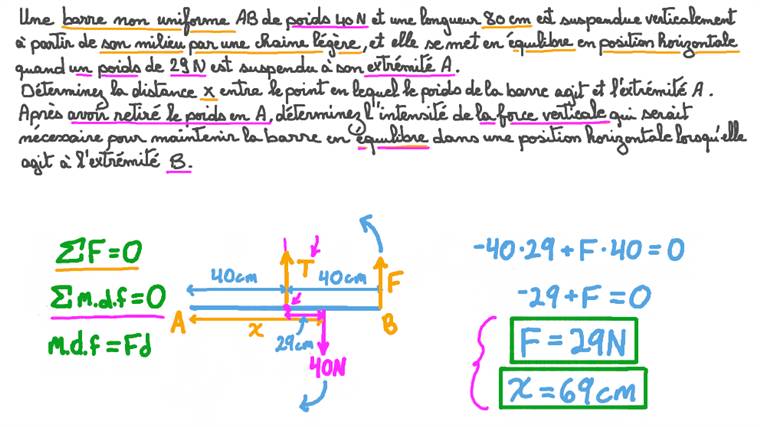 Une barre non uniforme AB de poids 40 N et une longueur 80 cm est suspendue verticalement
à partir de son milieu par une chaine légère, et elle se met en équilibre en position horizontale
quand un poids de 29 N est suspendu à son extrémité A.
Déterminez la distance x entre le point en lequel le poids de la barre agit et l'extrémité A.
Après avoir retiré le poids en A, déterminez l'intensité de la force verticale qui serait
nécessaire pour maintenir la barre en équilibre dans une position horizontale lorsqu'elle
agit à l'extrémité B.
ΣF = 0
Σm.d.f = 0
m.d.f = Fd
40cm
T
40cm
F
A
x
29cm
B
40N
-40·29 + F·40 = 0
-29 + F = 0
F = 29N
x = 69cm